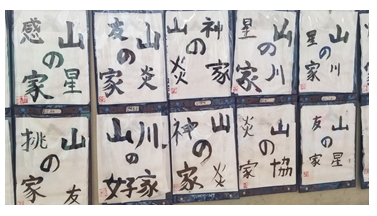 感 山
の
家 星
友 山
の
家 炎
山 神
の
炎 家
星 山
の
家 川
星 山
の
家 川
挑 山
の
家 友
山 川
の
好 家
神 山
の
家 炎
炎 山
の
家 協
友 山
の
家 星